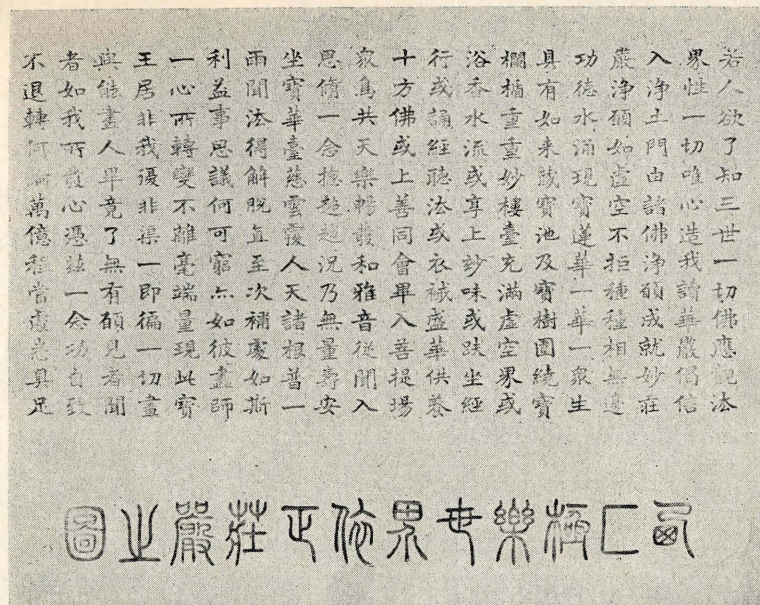 若人欲了知三世一切佛應觀法
界性一切唯心造我讀華嚴偈信
入淨土門由諸佛淨願成就妙莊
嚴淨願如虛空不拒種種相無邊
功德水涌現寶蓮華一華一衆生
具有如来藏寶池及寶樹圍繞寶
欄楯重重妙樓臺充滿虛空界或
浴香水流或享上妙味或趺坐經
行或誦經聽法或衣祴盛華供養
十方佛或上善同會畢入菩提場
衆鳥共天樂暢發和雅音從聞入
思脩一念捴超越況乃無量壽安
坐寶華臺慈雲覆人天諸根普一
雨聞法得解脫直至次補處如斯
利益事思議何可窮亦如彼畫師
一心所轉變不離毫端量現此寶
王居非我復非渠一即徧一切畫
與能畫人畢竟了無有願見者聞
者如我所發心憑茲一念功自致
不退轉何論萬億程當處悉具足
西方極樂世界依正莊嚴之圖